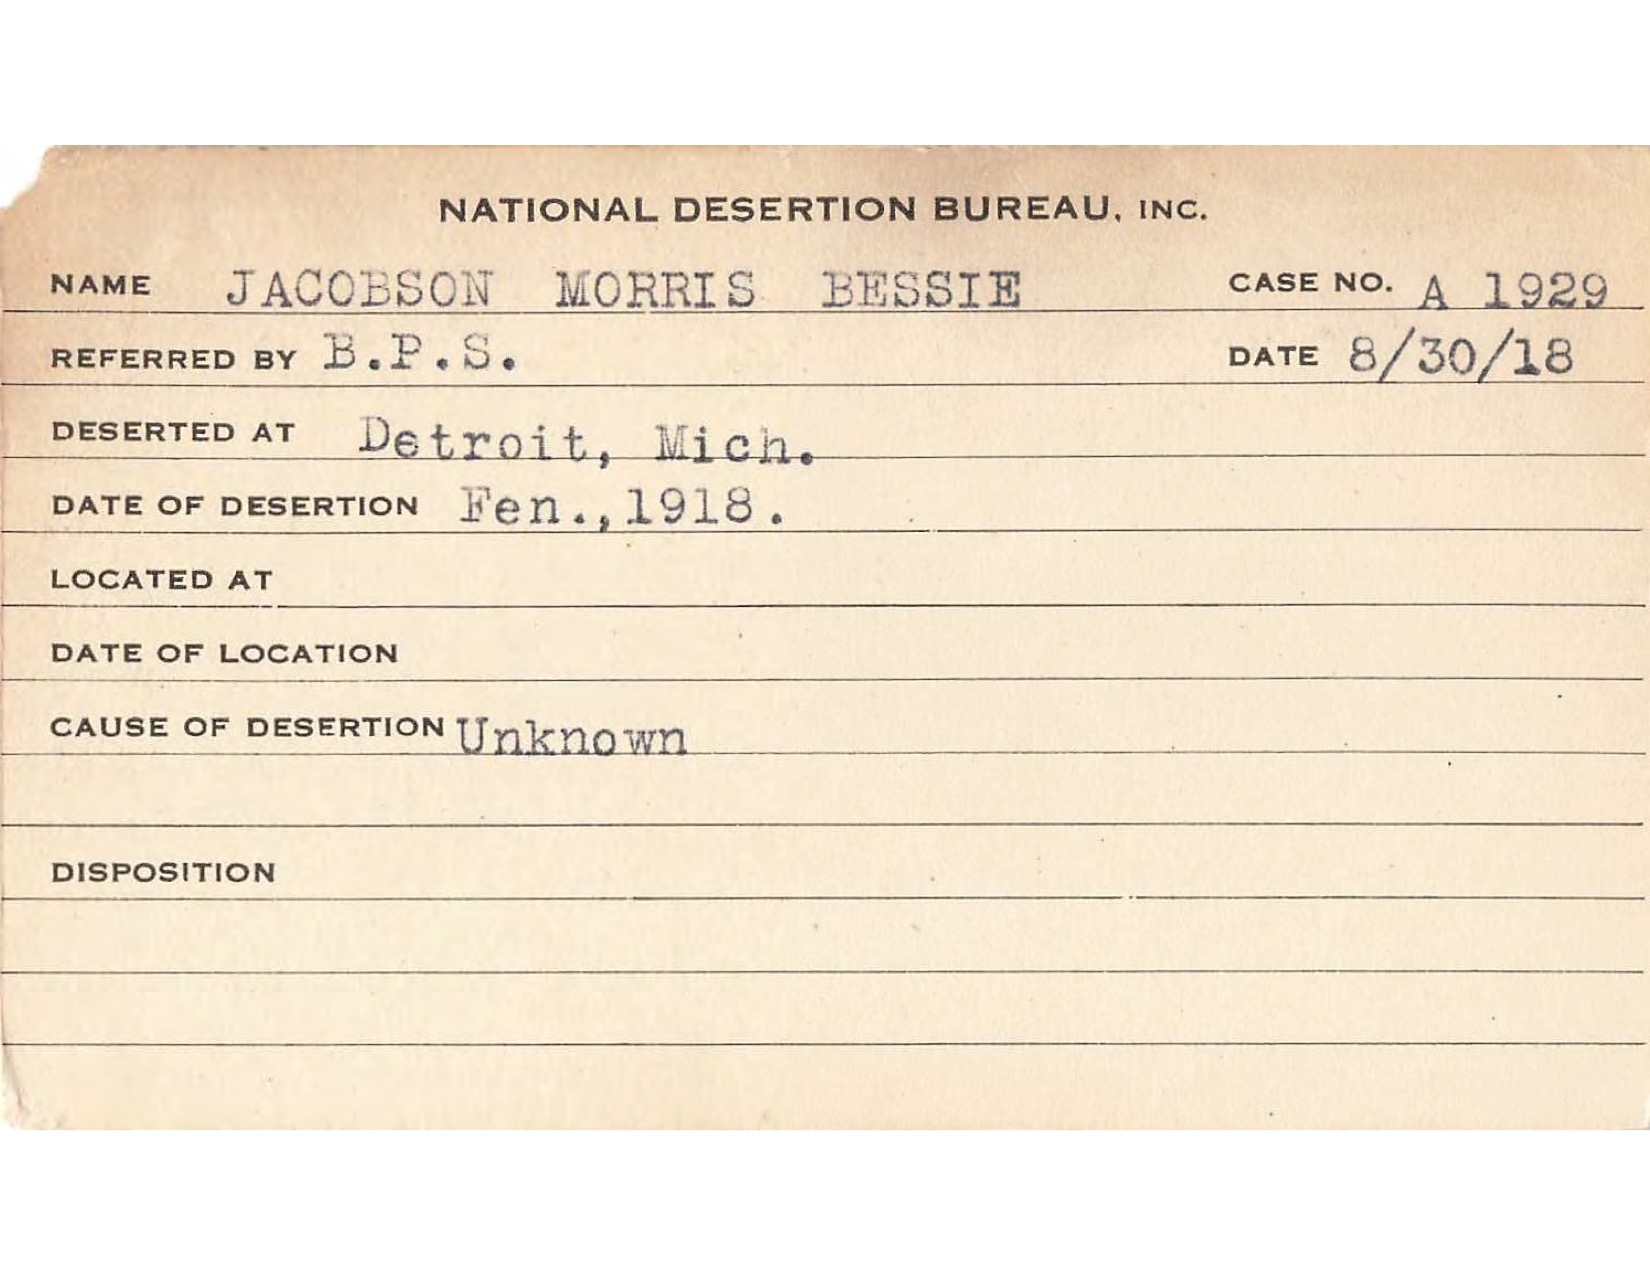 NATIONAL DESERTION BUREAU, INC.
NAME JACOBSON MORRIS BESSIE CASE NO. A 1929
REFERRED BY B.P.S. DATE 8/30/18
DESERTED AT Detroit, Mich.
DATE OF DESERTION Fen.,1918.
LOCATED AT
DATE OF LOCATION
CAUSE OF DESERTION Unknown
DISPOSITION